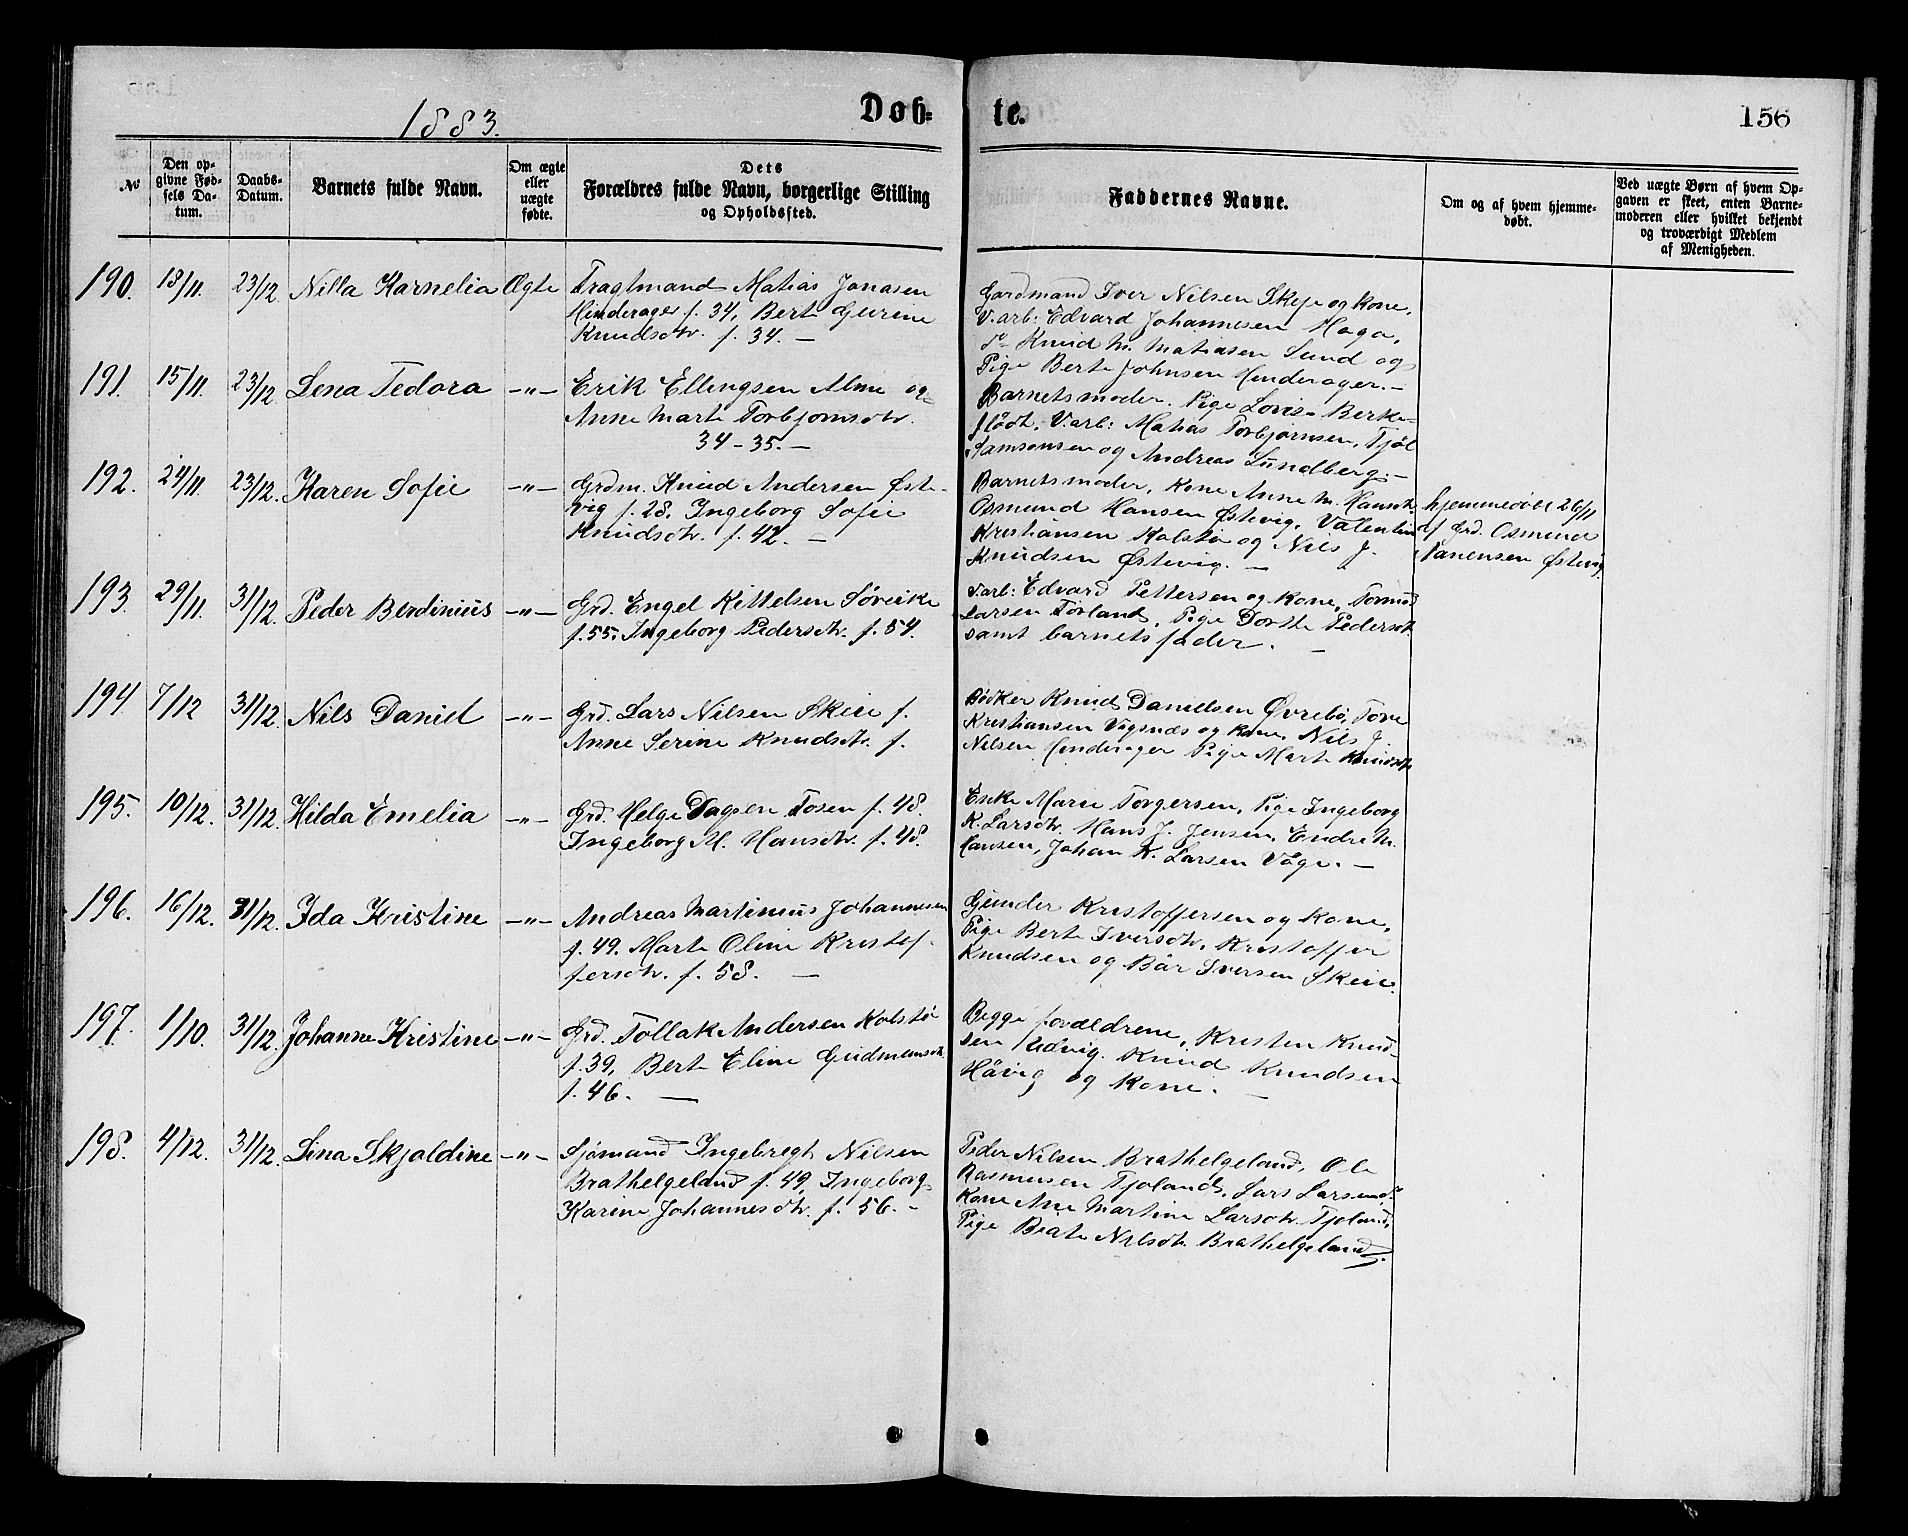 1883.
Døb-
te.
156
№
Den op-
givne Fød-
sels Da-
tum.
Daabs-
Datum.
Barnets fulde Navn.
Om ægte
eller
uægte
fødte.
Dets
Forældres fulde Navn, borgerlige Stilling
og Opholdssted.
Faddernes Navne.
Om og af hvem hjemme-
døbt.
Ved uægte Børn af hvem Op-
gaven er skeet, enten Barne-
moderen eller hvilket bekjendt
og troværdigt Medlem
af Menigheden.
190. 18/11. 23/12. Nilla Karnelia Ægte
Fragtmand Matias Jonasen
Hinderager f. 34, Berte Gurine
Knudsdtr. f. 34. —
Gardmand Iver Nilsen Skeje og kone,
V.arb: Edvard Johannesen Haga,
do Knud M. Matiasen Sund og
Pige Berte Johnsen Hinderager. —
191. 15/11. 23/12. Lena Tedora —„—
Erik Ellingsen Alme og
Anne Marte Torbjørnsdtr.
34 - 35. —
Barnetsmoder. Pige Lovise Berke-
flødt, V.arb: Matias Torbjørnsen, Tjøl
Samsonsen og Andreas Lundberg. —
192. 24/11. 23/12. Karen Sofie —„—
Grdm. Knud Andersen Øste-
vig f. 28, Ingeborg Sofie
Knudsdtr. f. 42. —
Barnetsmoder, Kone Anne M. Hansdtr.
Osmund Hansen Østevig, Valentin
Kristiansen Kolstø og Nils J.
Knudsen Østevig. —
hjemmedøbt 26/11
af Grd. Osmund
Hanensen Østevig
193. 29/11. 31/12. Peder Berdinius —„—
Grd. Engel Kittelsen Søreike
f. 55. Ingeborg Pedersdtr. f. 54.
V.arb: Edvard Pettersen og kone, Tormod
Larsen Førland, Pige Dorthe Pedersdtr
samt barnets fader. —
194. 7/12 31/12. Nils Daniel —„—
Grd. Lars Nilsen Skeie f.
Anne Serine Knudsdtr. f.
Bødker Knud Danielsen Øvrebø, Tore
Kristiansen Vigsnæs og kone, Nils J.
Nilsen Hinderager Pige Marte Knudsdtr
195. 10/12. 31/12. Hilda Emelia —„—
Grd. Helge Dagsen Fosen f. 48.
Ingeborg M. Hansdtr. f. 48.
Enke Marie Torgersen, Pige Ingeborg
K. Larsdtr. Hans J. Jensen, Endre M.
Hansen, Johan K. Larsen Våge. —
196. 16/12. 31/12. Ida Kristine —„—
Andreas Martinius Johannesen
f. 49. Marte Oline Kristof-
fersdtr. f. 58. —
Gunder Kristoffersen og kone,
Pige Berte Iversdtr, Kristoffer
Knudsen og Bår Iversen Skeie.
197. 1/10. 31/12. Johanne Kristine —„—
Grd. Tollak Andersen Kolstø
f. 39, Berte Eline Gudmunsdtr.
f. 46. —
Begge forældrene, Kristen Knud-
sen Udvig. Knud Knudsen
Håvig og kone. —
198. 4/12. 31/12. Lina Skjoldine —„—
Sjømand Ingebregt Nilsen
Brathelgeland f. 49, Ingeborg
Karine Johannesdtr. f. 56. -
Peder Nilsen Brathelgeland, Ole
Rasmusen Tjoland, Lars Larsen do
Kone Ane Martine Larsdtr. Tjoland,
Pige Beate Nilsdtr. Brathelgeland.